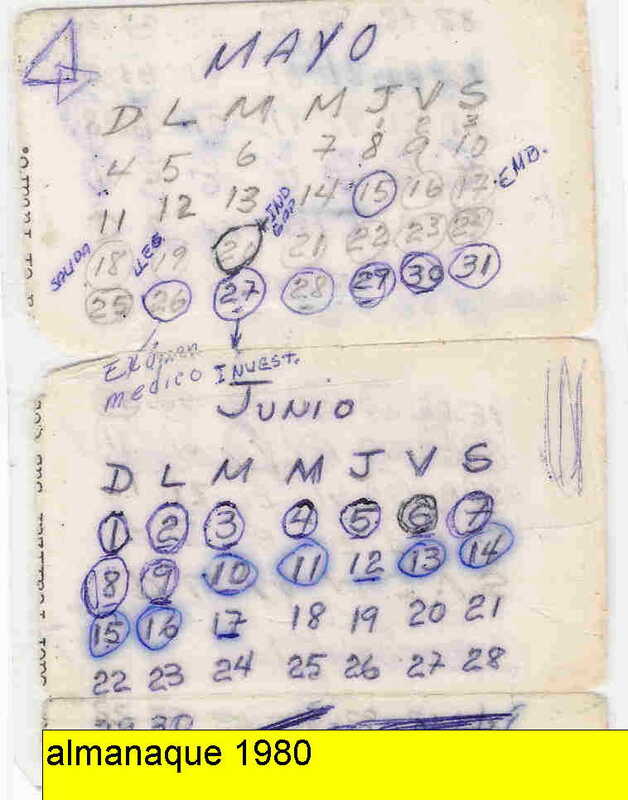 MAYO
D L M M J V S
1 2 3
4 5 6 7 8 9 10
11 12 13 14 15 16 17
EMB.
IND
SALIDA
18 19 21 21 22 23
25 26 27 28 29 30 31
Exámen
medico INVEST.
JUNIO
D L M M J V S
1 2 3 4 5 6 7
8 9 10 11 12 13 14
15 16 17 18 19 20 21
22 23 24 25 26 27 28
29 30
almanaque 1980